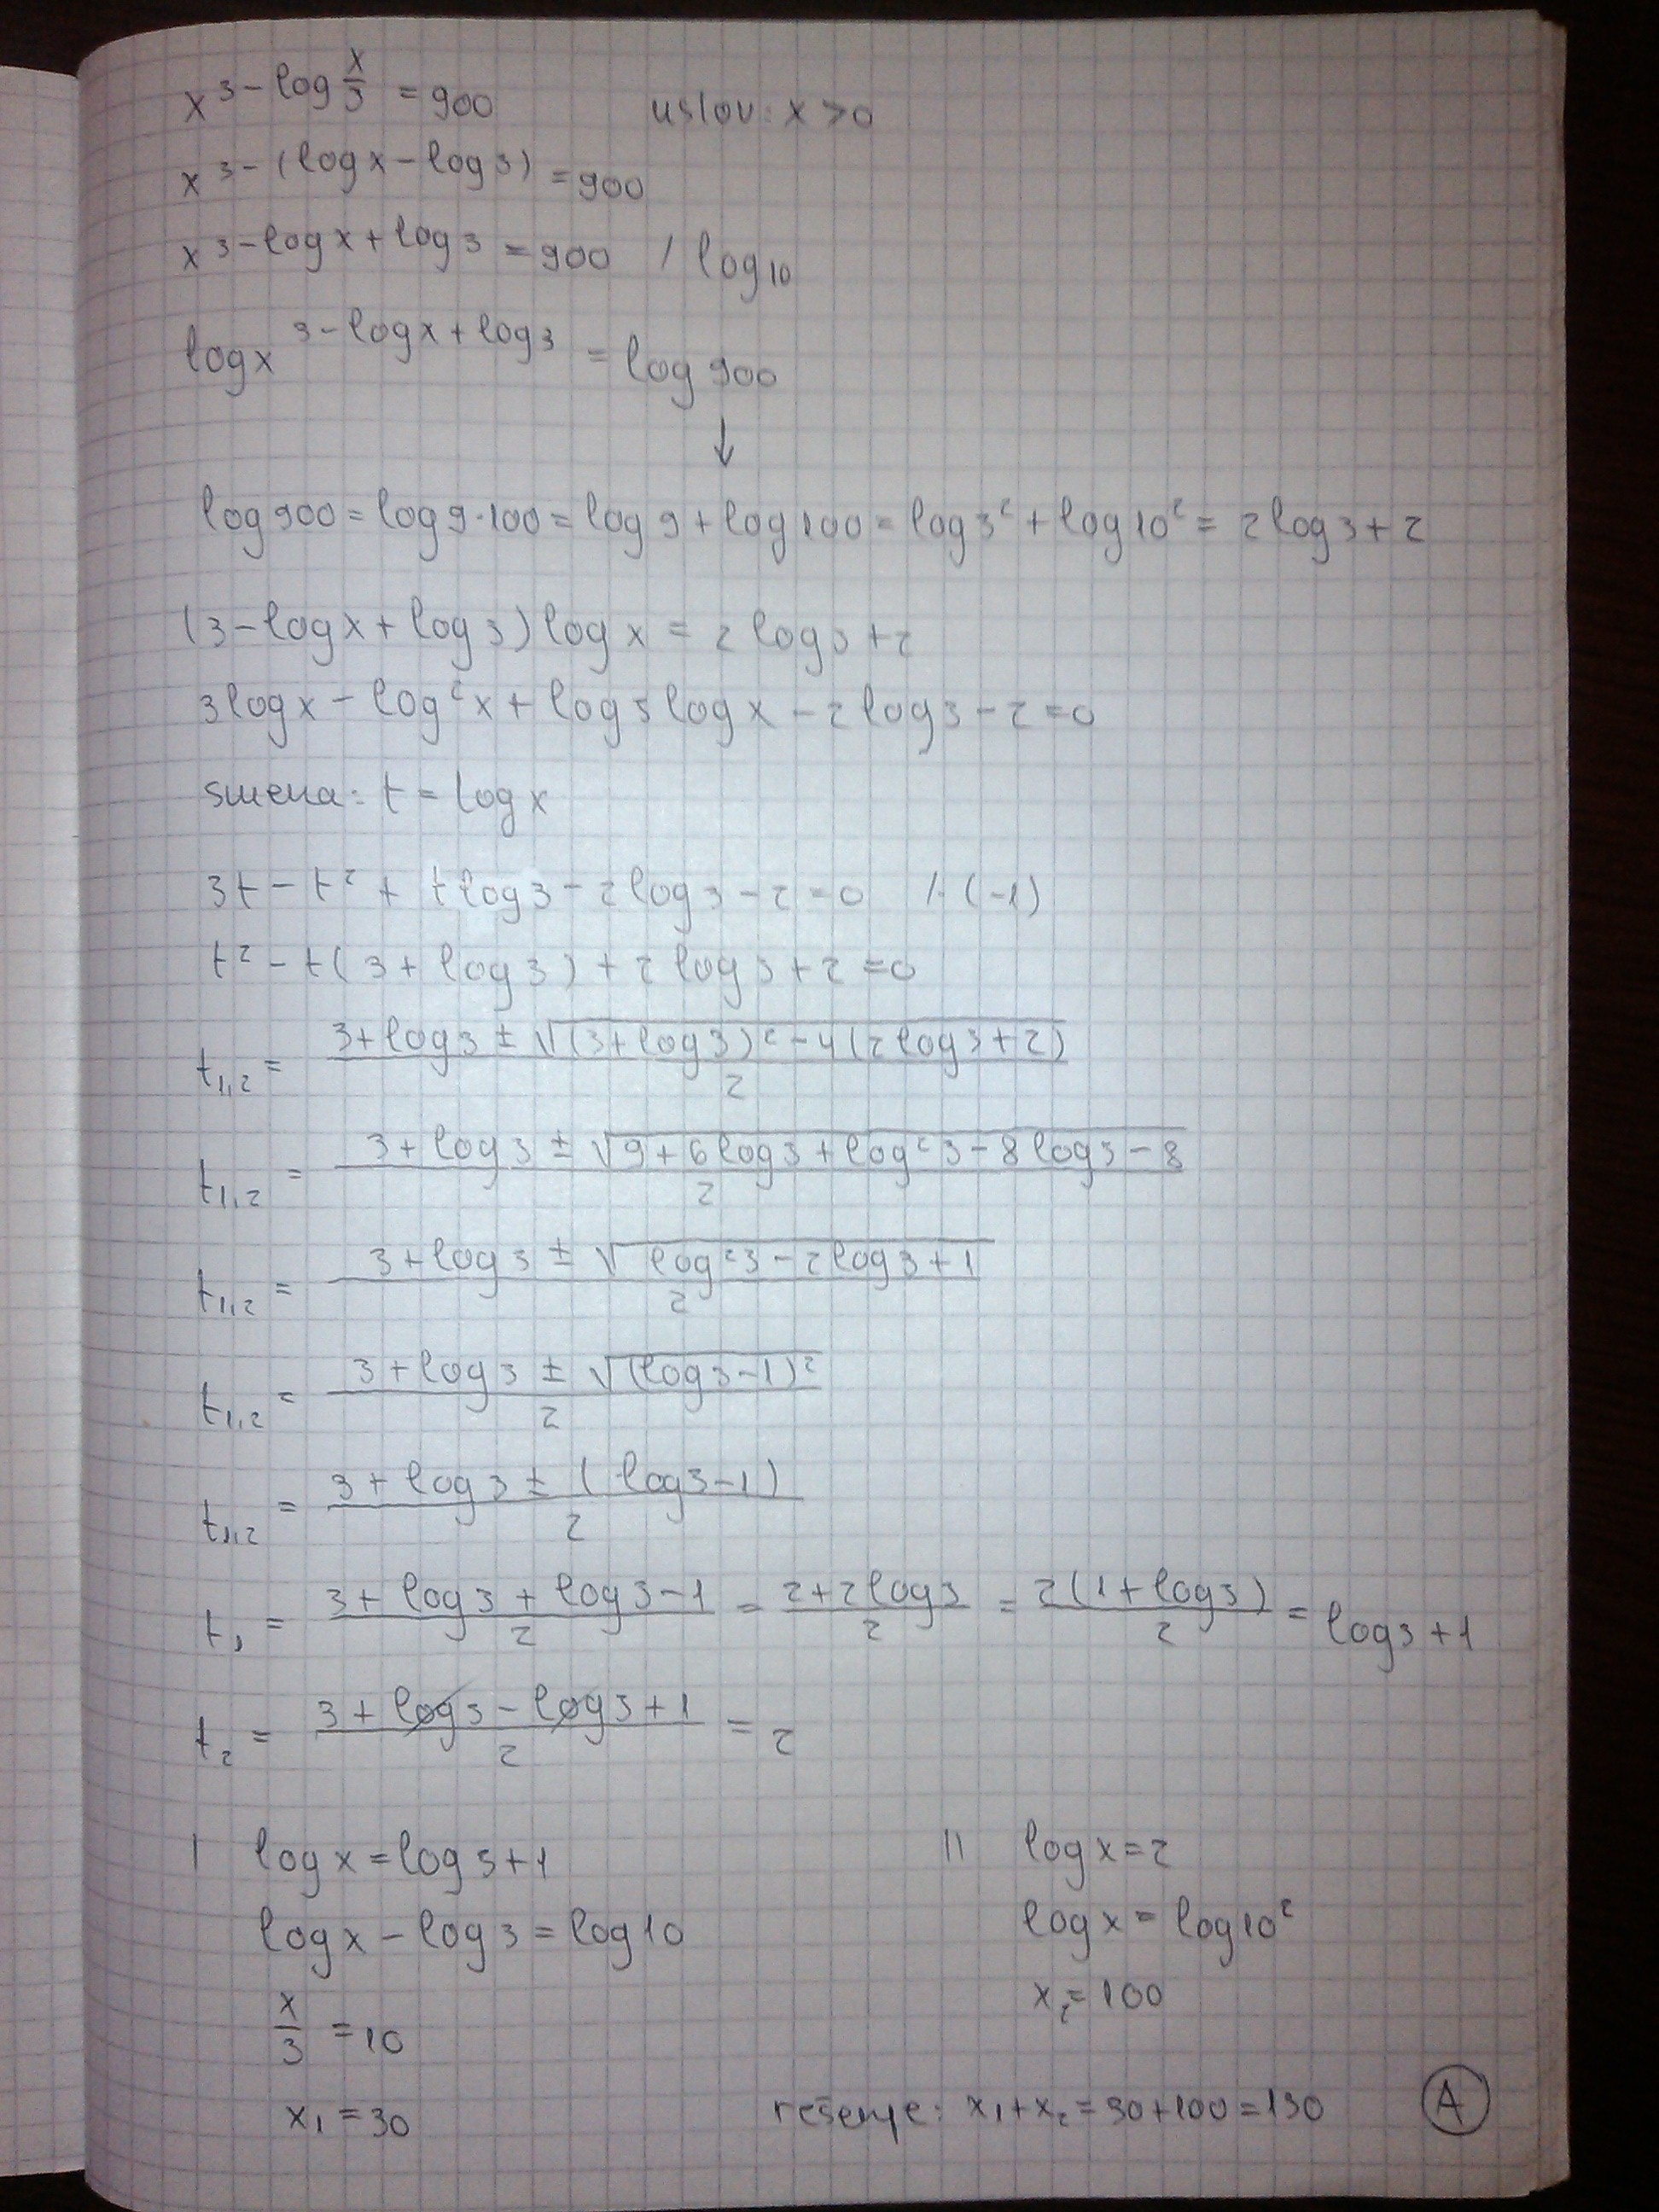 x^(3-log x/3) = 900   uslov: x > 0
x^(3-(log x - log 3)) = 900
x^(3-log x + log 3) = 900 / log10
log x^(3-log x + log 3) = log 900
↓
log 900 = log 9·100 = log 9 + log 100 = log 3² + log 10² = 2 log 3 + 2
(3 - log x + log 3) log x = 2 log 3 + 2
3 log x - log² x + log 3 log x - 2 log 3 - 2 = 0
smena: t = log x
3t - t² + t log 3 - 2 log 3 - 2 = 0 /·(-1)
t² - t(3 + log 3) + 2 log 3 + 2 = 0
t₁,₂ = (3 + log 3 ± √((3 + log 3)² - 4(2 log 3 + 2))) / 2
t₁,₂ = (3 + log 3 ± √(9 + 6 log 3 + log² 3 - 8 log 3 - 8)) / 2
t₁,₂ = (3 + log 3 ± √(log² 3 - 2 log 3 + 1)) / 2
t₁,₂ = (3 + log 3 ± √((log 3 - 1)²)) / 2
t₁,₂ = (3 + log 3 ± (log 3 - 1)) / 2
t₁ = (3 + log 3 + log 3 - 1) / 2 = (2 + 2 log 3) / 2 = 2(1 + log 3) / 2 = log 3 + 1
t₂ = (3 + log 3 - log 3 + 1) / 2 = 2
I log x = log 3 + 1
log x - log 3 = log 10
x/3 = 10
x₁ = 30
II log x = 2
log x = log 10²
x₂ = 100
rešenje: x₁ + x₂ = 30 + 100 = 130 A